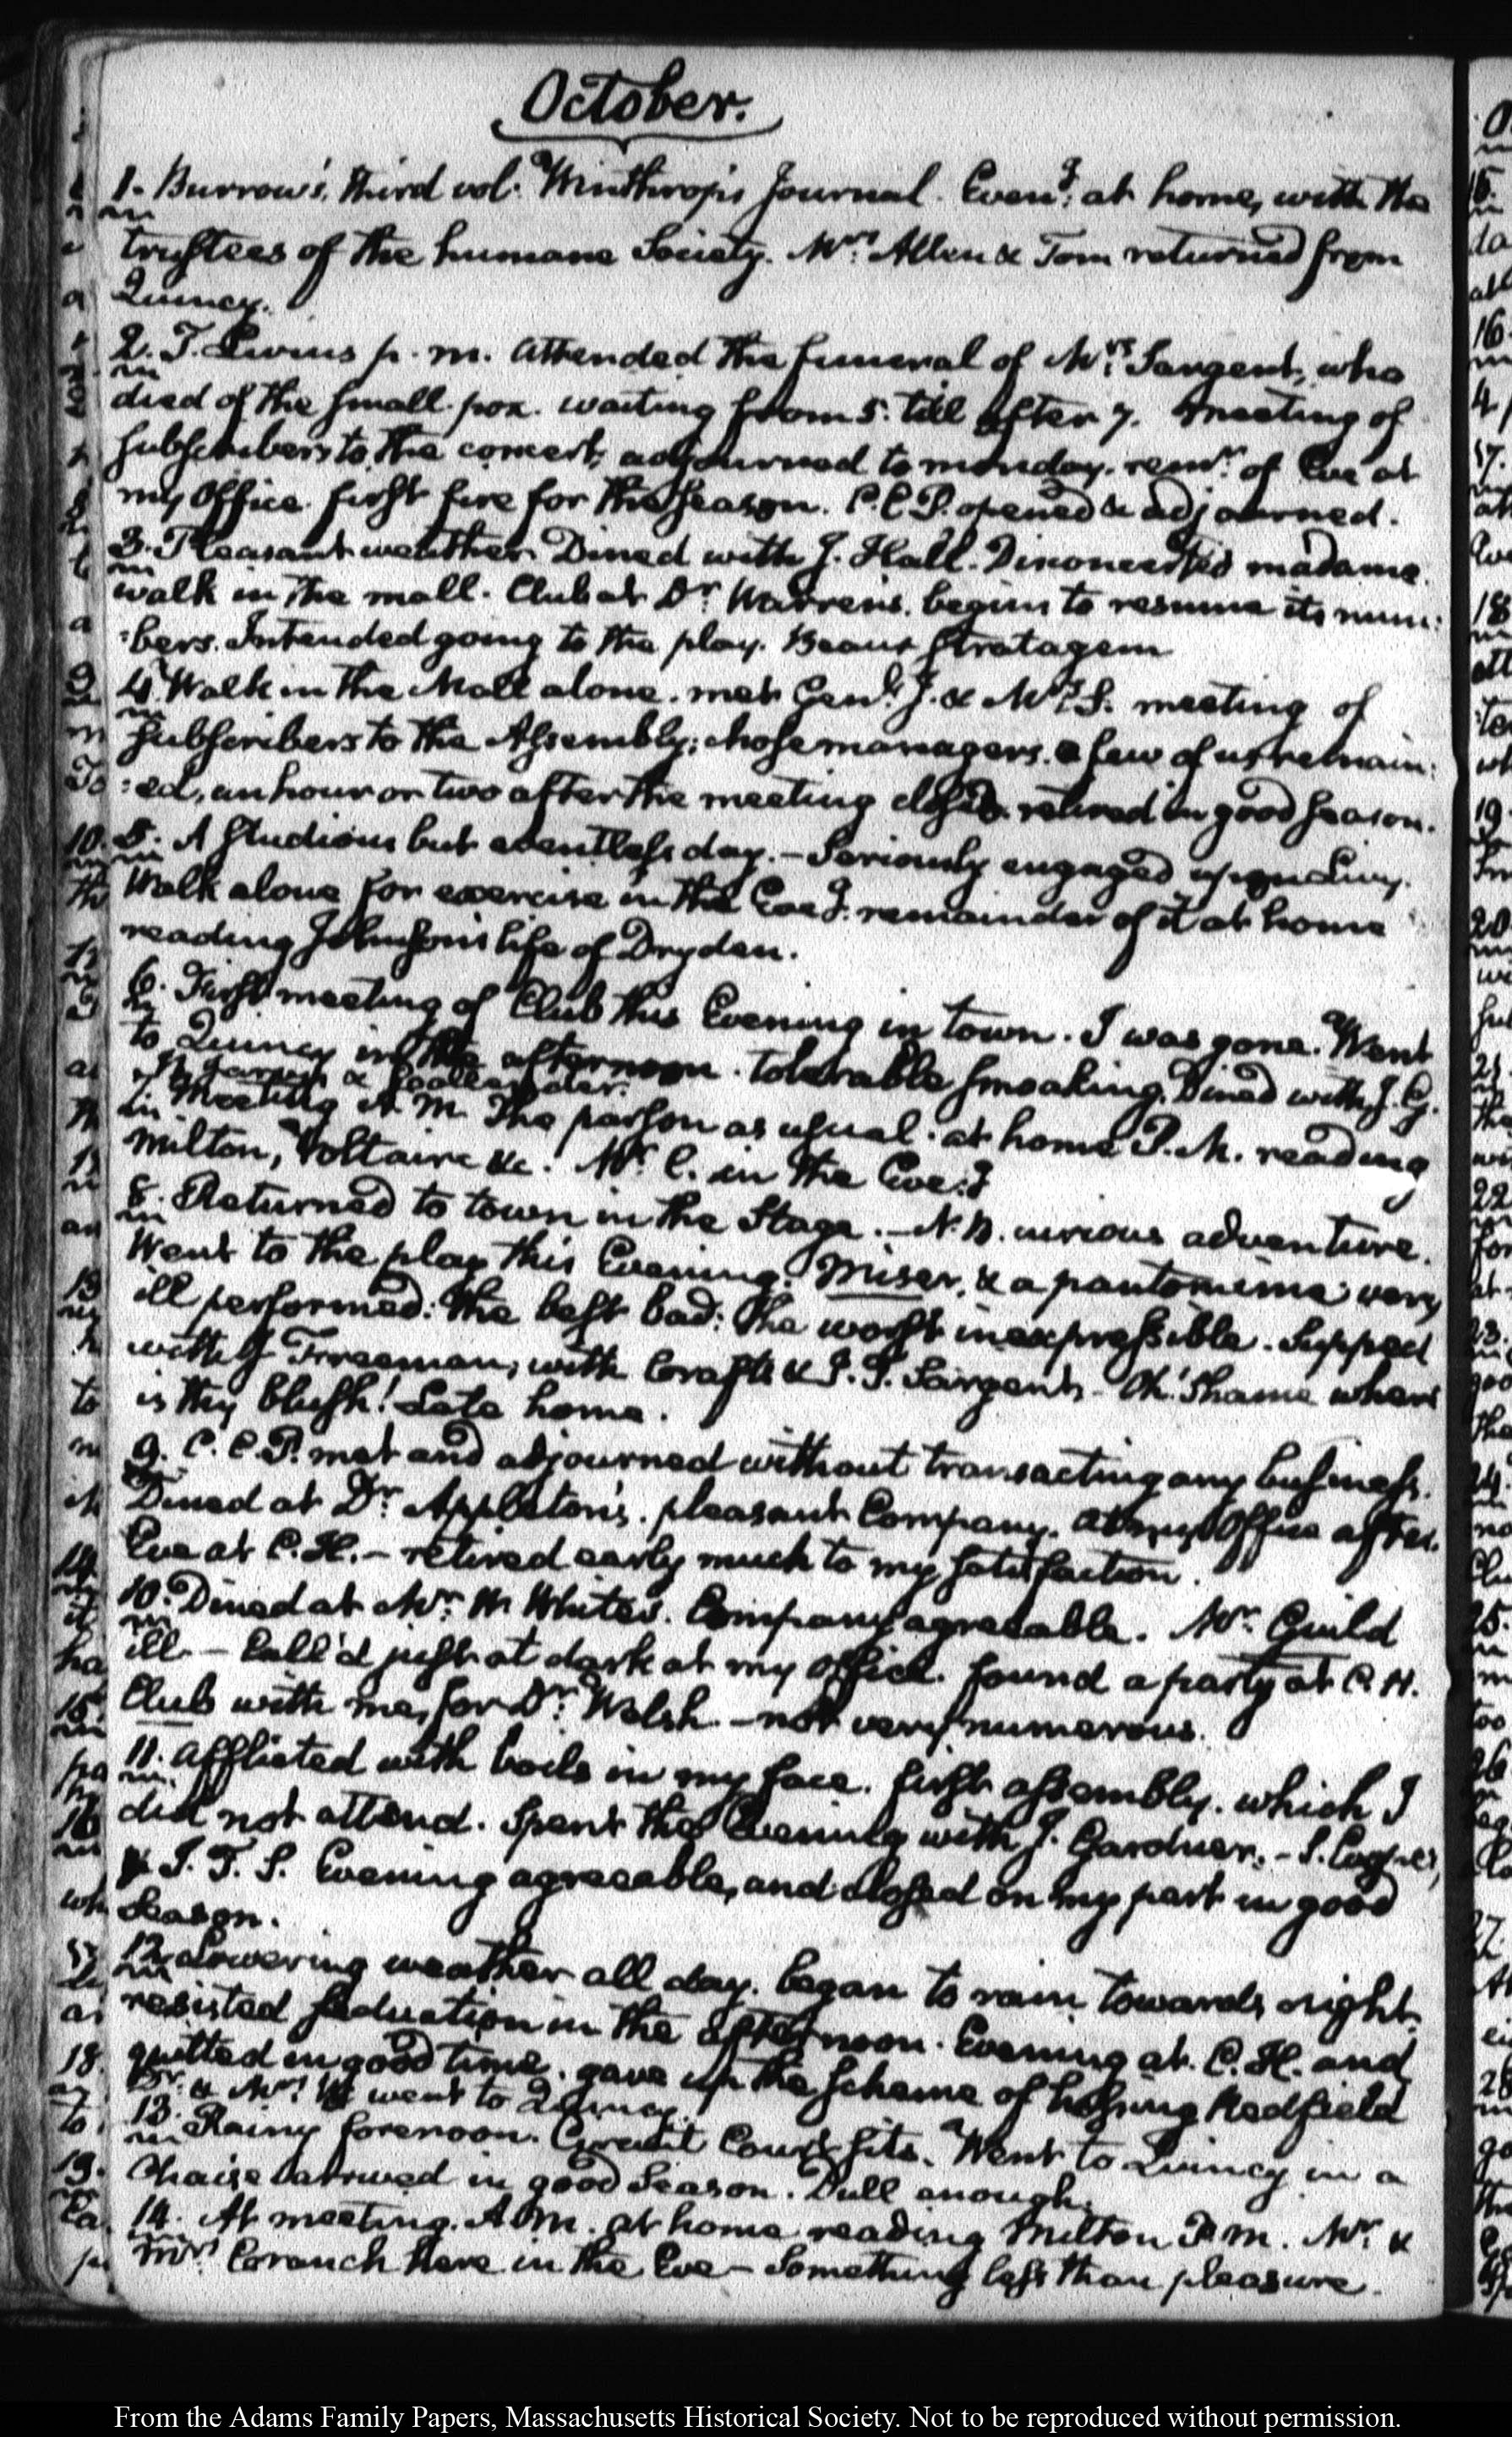 October.
1. Burrow's third vol. Winthrop's Journal. Eveng. at home, with the
trustees of the humane Society. Mrs. Allen & Tom returned from
Quincy.
2. T. Livius p.m. attended the funeral of Mrs. Sargent, who
died of the small pox. waiting from 5. till after 7. meeting of
subscribers to the concert; adjourned to monday. remr. of Eve at
my Office. first fire for the season. C.C.P. opened & adjourned.
3. Pleasant weather. Dined with J. Hall. Disconcerted madame.
walk in the mall. Club at Dr. Warren's. begins to resume its num:
:bers. Intended going to the play. Beaux Stratagem
4. Walk in the Mall alone. met Genl. J. & Mrs. S. meeting of
subscribers to the Assembly; chose managers. a few of us remain:
:ed, an hour or two after the meeting closed. retired in good season.
5. A studious but eventless day.— Seriously engaged upon Livy.
Walk alone for exercise in the Eveg. remainder of it at home
reading Johnson's life of Dryden.
6. First meeting of Club this Evening in town. I was gone. Went
to Quincy in the afternoon. tolerable smoaking. Dined with J. G.
Meeting A.M. The parson as usual. at home P.M. reading
Milton, Voltaire &c. Mr. C. in the Eve:g
8. Returned to town in the Stage.— N.B. curious adventure.
Went to the play this Evening. Miser, & a pantomime very
ill performed: the best bad: the worst inexpressible. Supped
with J Freeman, with Crafts & J. T. Sargent— Oh! Shame where
is thy blush! Late home.
9. C.C.P. met and adjourned without transacting any business.
Dined at Dr. Appleton's. pleasant Company. at my Office after.
Eve at C.H.— retired early much to my satisfaction.
10. Dined at Mr. W. White's. Company agreeable. Mr. Guild
ill— Call'd just at dark at my office. found a party at C. H.
Club with me, for Dr. Welsh.— not very numerous.
11. afflicted with boils in my face. first assembly. which I
did not attend. Spent the Evening with J. Gardner.— S. Cooper,
& J. T. S. Evening agreeable, and closed on my part in good
Season.
12. Lowering weather all day. began to rain towards night.
resisted seduction in the afternoon. Evening at C.H. and
quitted in good time. gave up the scheme of Medfield
Dr. & Mrs. W went to Quincy.
13. Rainy forenoon. Circuit Court sits. Went to Quincy in a
Chaise arrived in good Season. Dull enough.
14. At meeting. A.M. at home reading Milton P.M. Mr. &
Mrs. Cranch here in the Eve— Something less than pleasure.
From the Adams Family Papers, Massachusetts Historical Society. Not to be reproduced without permission.